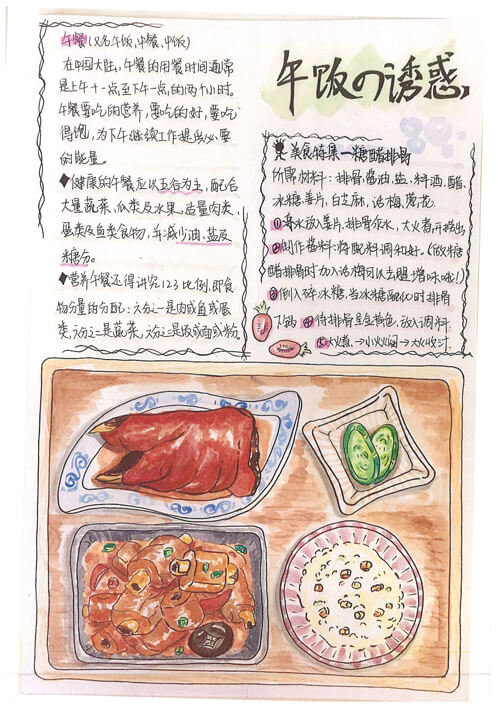 午饭の诱惑
午餐(又名午饭,中餐,中饭)
在中国大陆,午餐的用餐时间通常
是上午十一点至下午一点的两个小时.
午餐要吃的营养,要吃的好,要吃
得饱,为下午继续工作提供必要
的能量.
◆健康的午餐应以五谷为主,配合
大量蔬菜,瓜类及水果,适量肉类,
蛋类及鱼类食物,并减少油,盐及
糖分。
◆营养午餐还得讲究1:2:3比例.即食
物分量的分配:六分之一是肉或鱼或蛋
类,六分之二是蔬菜,六分之三是饭或面或粉.
美食特集—糖醋排骨
所需材料:排骨,酱油,盐,料酒,醋,
冰糖,姜片,白芝麻,话梅,葱花.
①凉水放入姜片,排骨焯水,大火煮开捞出
②制作酱料:将配料调和好.(做糖
醋排骨时加入话梅可以去腥增味哦!)
③倒入碎冰糖,当冰糖融化时排骨
入锅 ④待排骨呈金黄色,放入调料.
⑤大火煮,→小火焖→大火收汁.